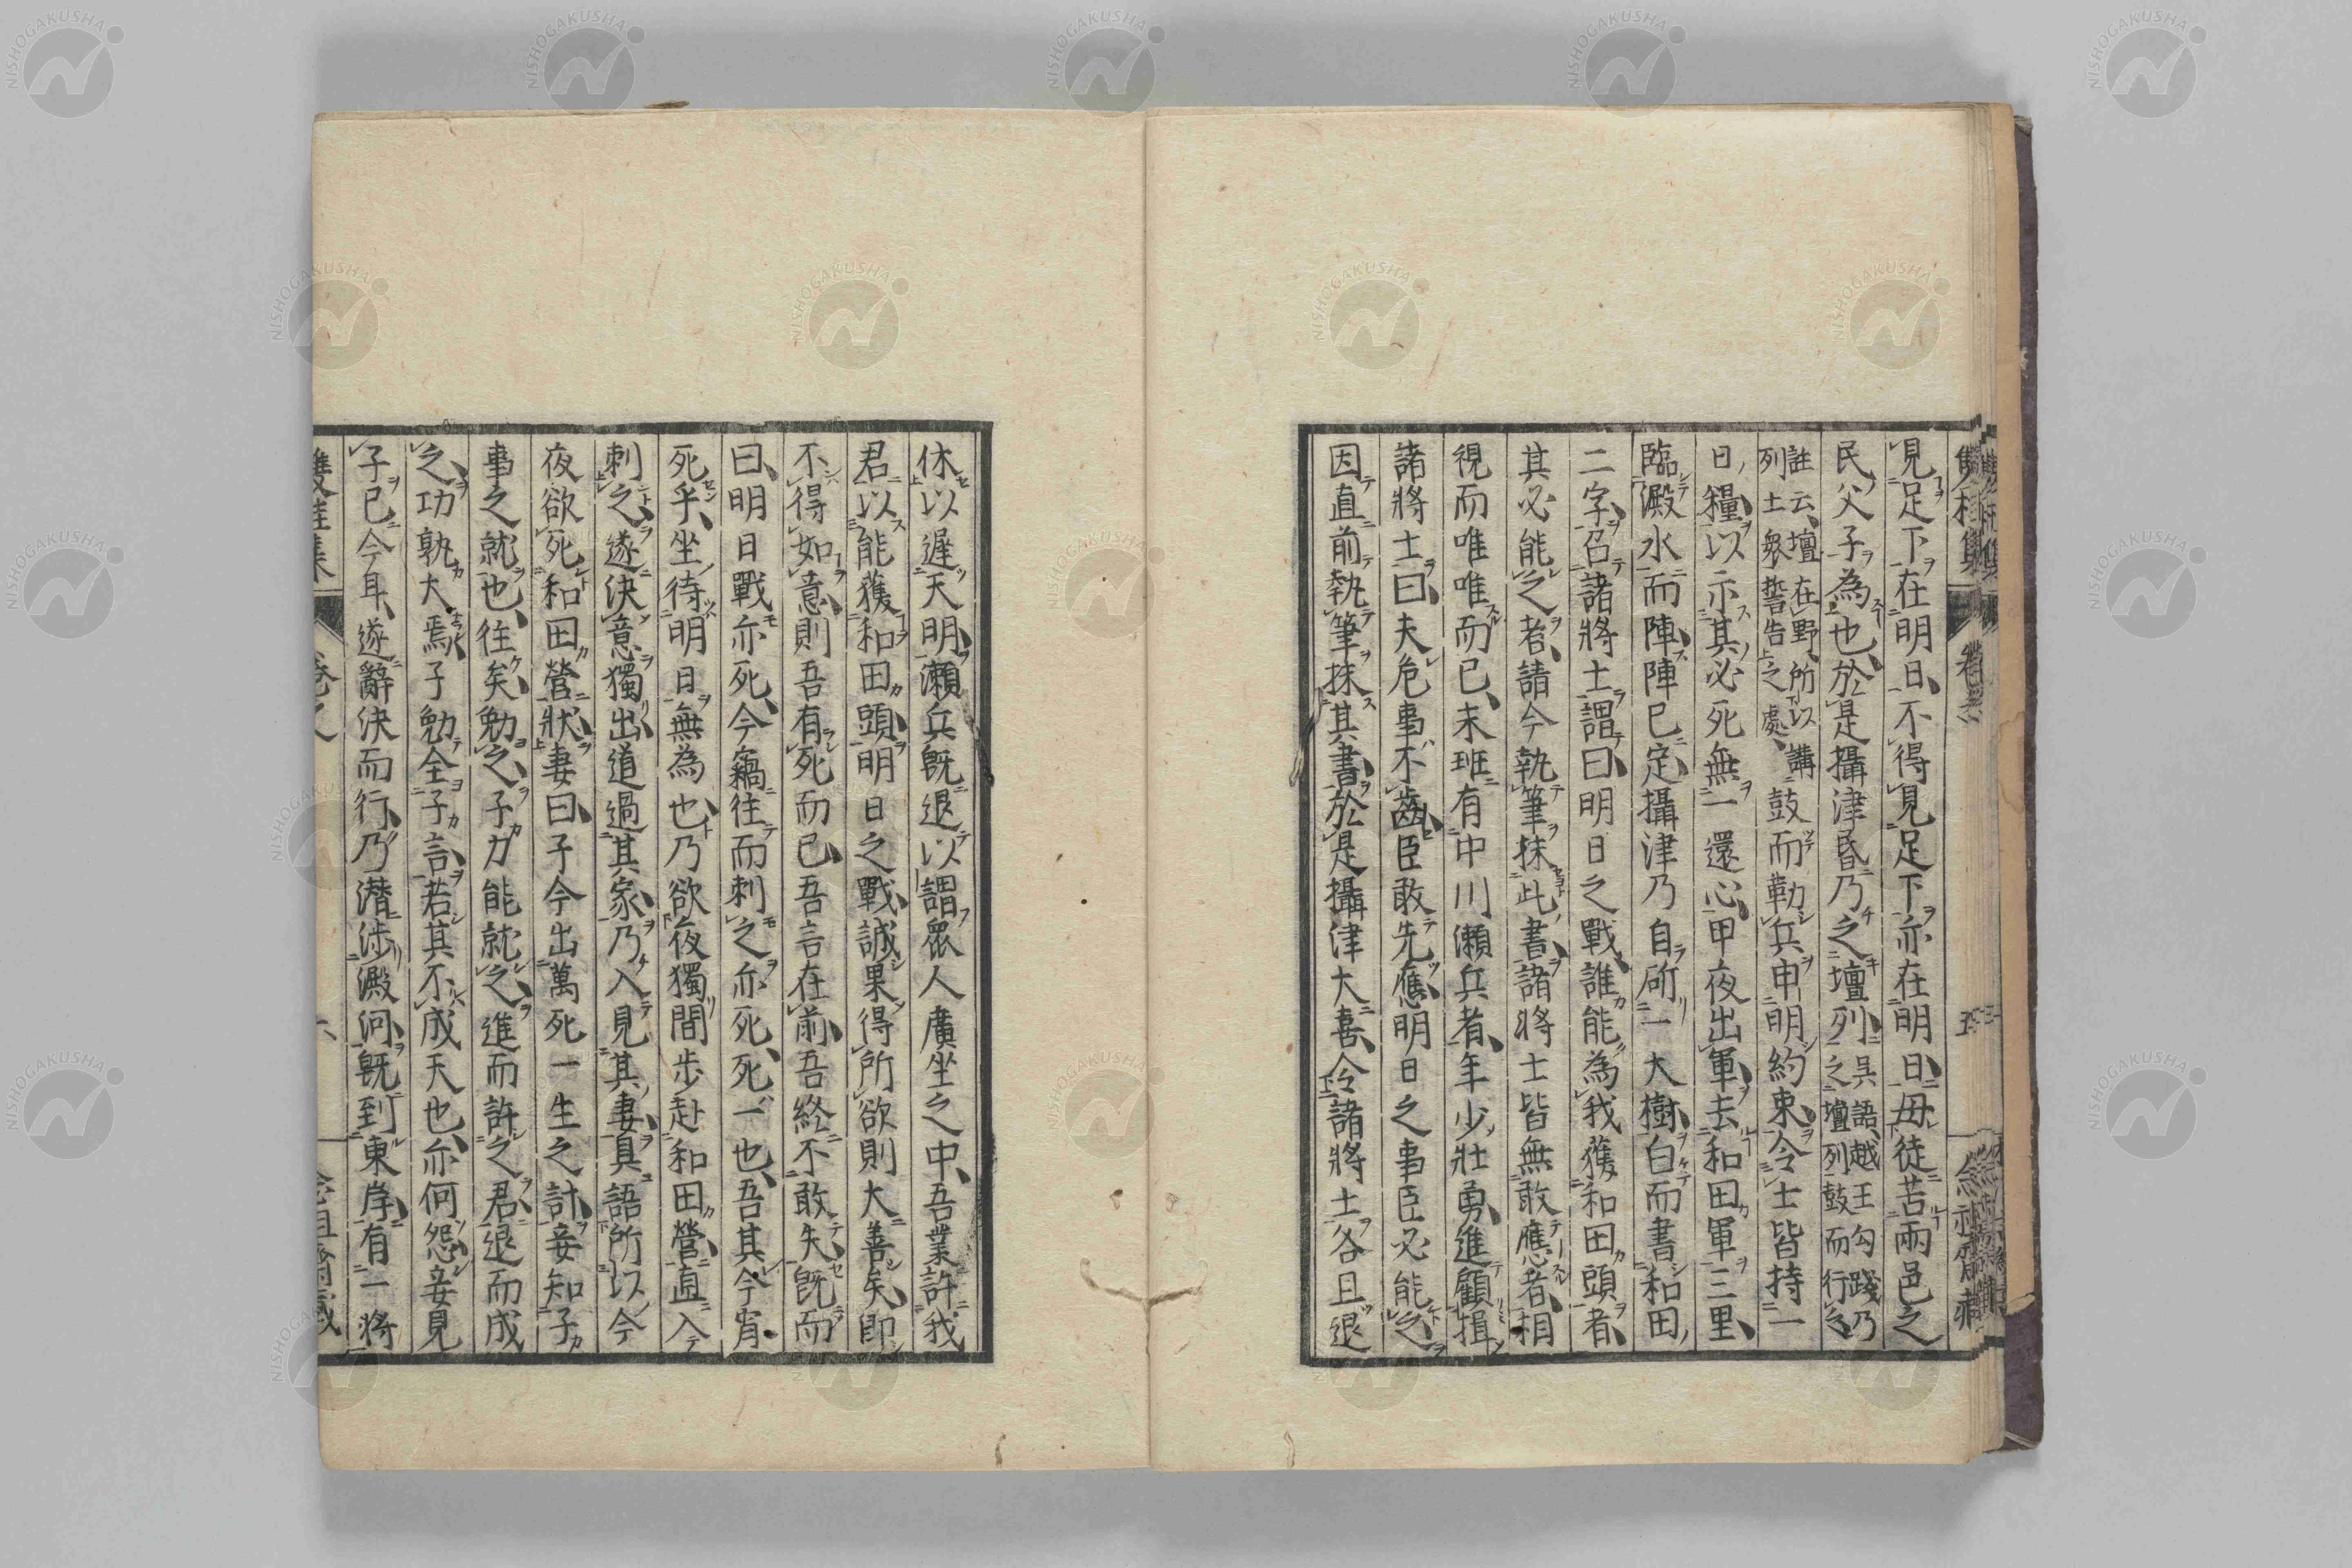 見足下在明日、不得見足下亦在明日、毋徒苦兩邑之
民父子為也、於是攝津昏乃之壇列、吳語越王勾踐乃之壇列鼓而行之
註云、壇在野、所以講列士衆誓告之處、鼓而勒兵申明約束、令士皆持一
日糧、以示其必死無一還心、甲夜出軍、去和田軍三里、
臨澱水而陣、陣已定、攝津乃自斫一大樹、白而書和田
二字、召諸將士謂曰、明日之戰、誰能為我獲和田頭者、
其必能之者、請今執筆抹此書、諸將士皆無敢應者、相
視而唯唯而已、末班有中川瀬兵者、年少壯勇、進顧揖
諸將士曰、夫危事不齒、臣敢先應、明日之事臣必能之、
因直前執筆抹其書、於是攝津大喜、令諸將士各且退
休以遲天明、瀬兵既退、以謂衆人廣坐之中、吾業許我
君以能獲和田頭、明日之戰、誠果得所欲則大善矣、即
不得如意、則吾有死而已、吾言在前、吾終不敢失、既而
曰、明日戰亦死、今竊往而刺之亦死、死一也、吾其今宵
死乎、坐待明日無為也、乃欲夜獨間步赴和田營、直入
刺之、遂決意獨出、道過其家、乃入見其妻、具語所以今
夜欲死和田營狀、妻曰、子今出萬死一生之計、妾知子
事之就也、往矣、勉之、子力能就之、進而許之君、退而成
之、功孰大焉、子勉全子言、若其不成天也、亦何怨、妾見
子已今耳、遂辭決而行、乃潛涉澱河、既到東岸、有一將